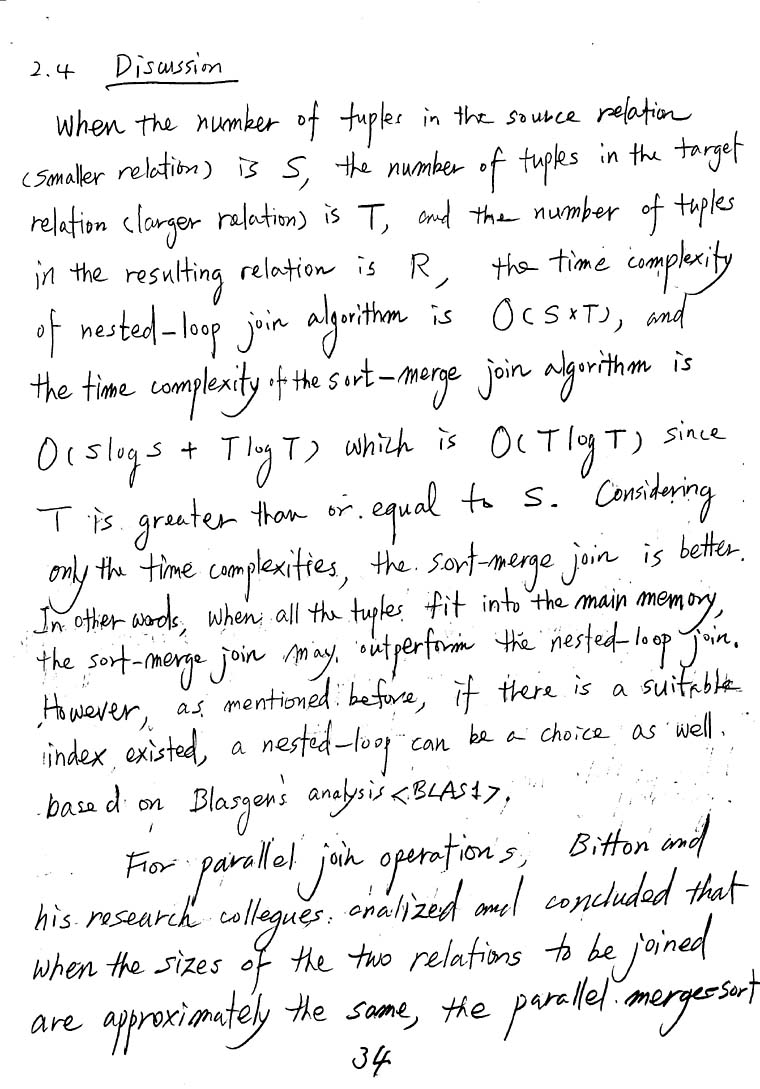 2.4 Discussion
When the number of tuples in the source relation
(smaller relation) is S, the number of tuples in the target
relation (larger relation) is T, and the number of tuples
in the resulting relation is R, the time complexity
of nested-loop join algorithm is O(S×T), and
the time complexity of the sort-merge join algorithm is
O(SlogS + TlogT) which is O(TlogT) since
T is greater than or equal to S. Considering
only the time complexities, the sort-merge join is better.
In other words, when all the tuples fit into the main memory,
the sort-merge join may outperform the nested-loop join.
However, as mentioned before, if there is a suitable
index existed, a nested-loop can be a choice as well.
based on Blasgen's analysis <BLAS1>.
For parallel join operations, Bitton and
his research collegues analized and concluded that
when the sizes of the two relations to be joined
are approximately the same, the parallel merge-sort
34